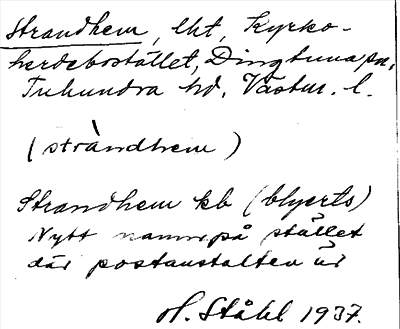 Strandhem, lht, Kyrko-
herdebostället, Dingtuna sn,
Tuhundra hd, Västm. l.
(stràndhem)
Strandhem kb (blyerts)
Nytt namn på stället
där postanstalten är
H. Ståhl 1937.